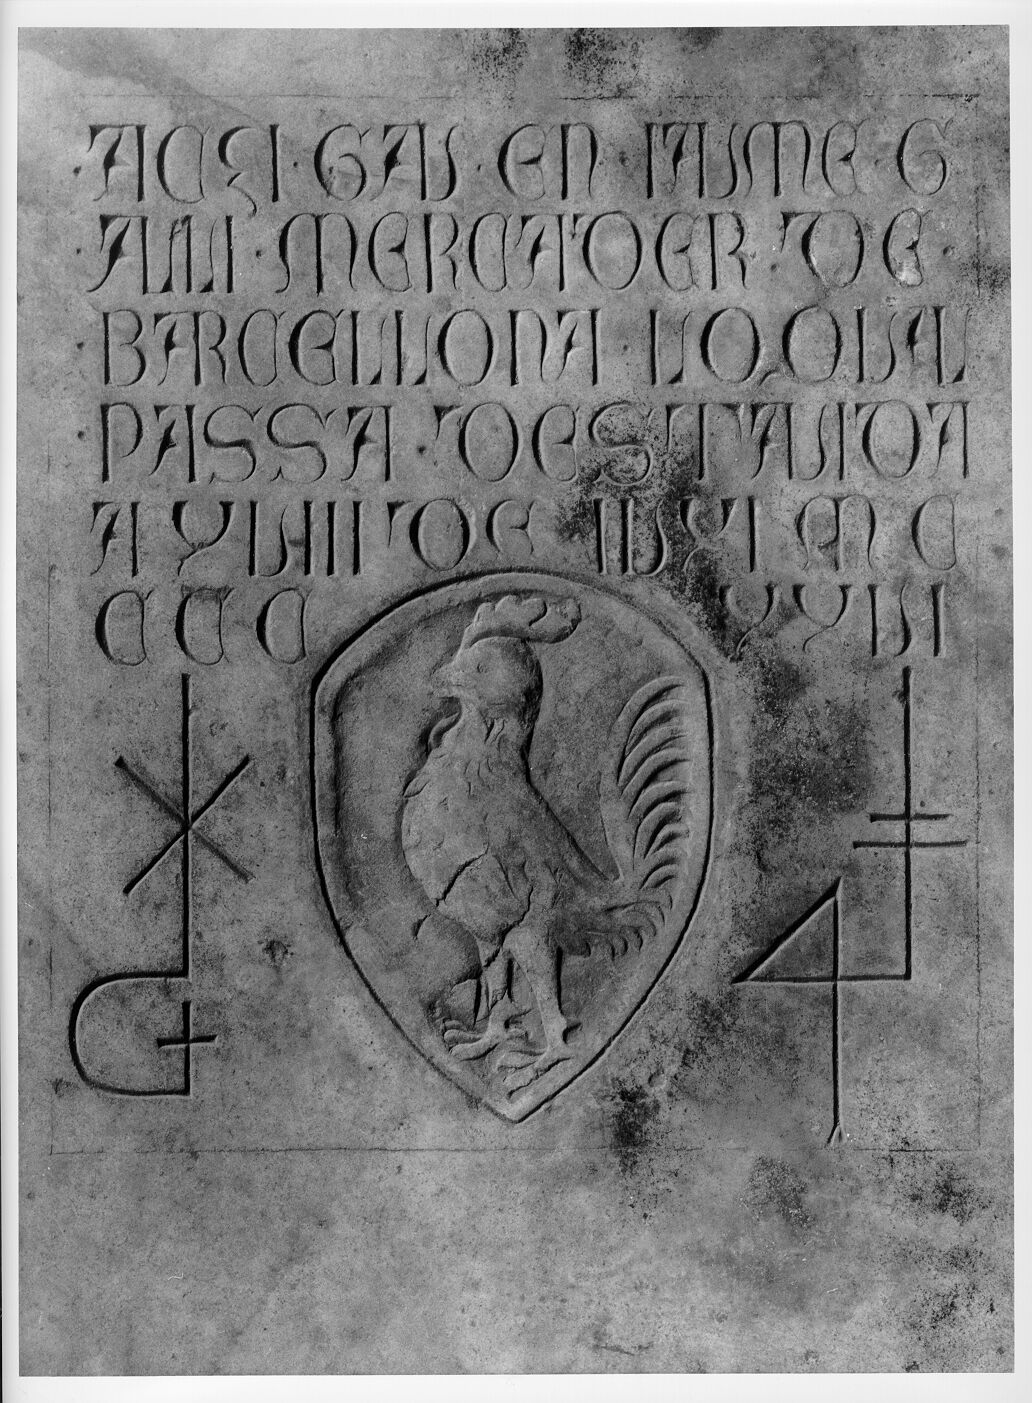 ACZI · GAU · EN · IAUME G
· ALL · MERCADER · DE ·
· BARCELLONA · LOQUAL
· PASSA · DESTA UIDA
· A XUIII DE M C
CCC XXUI